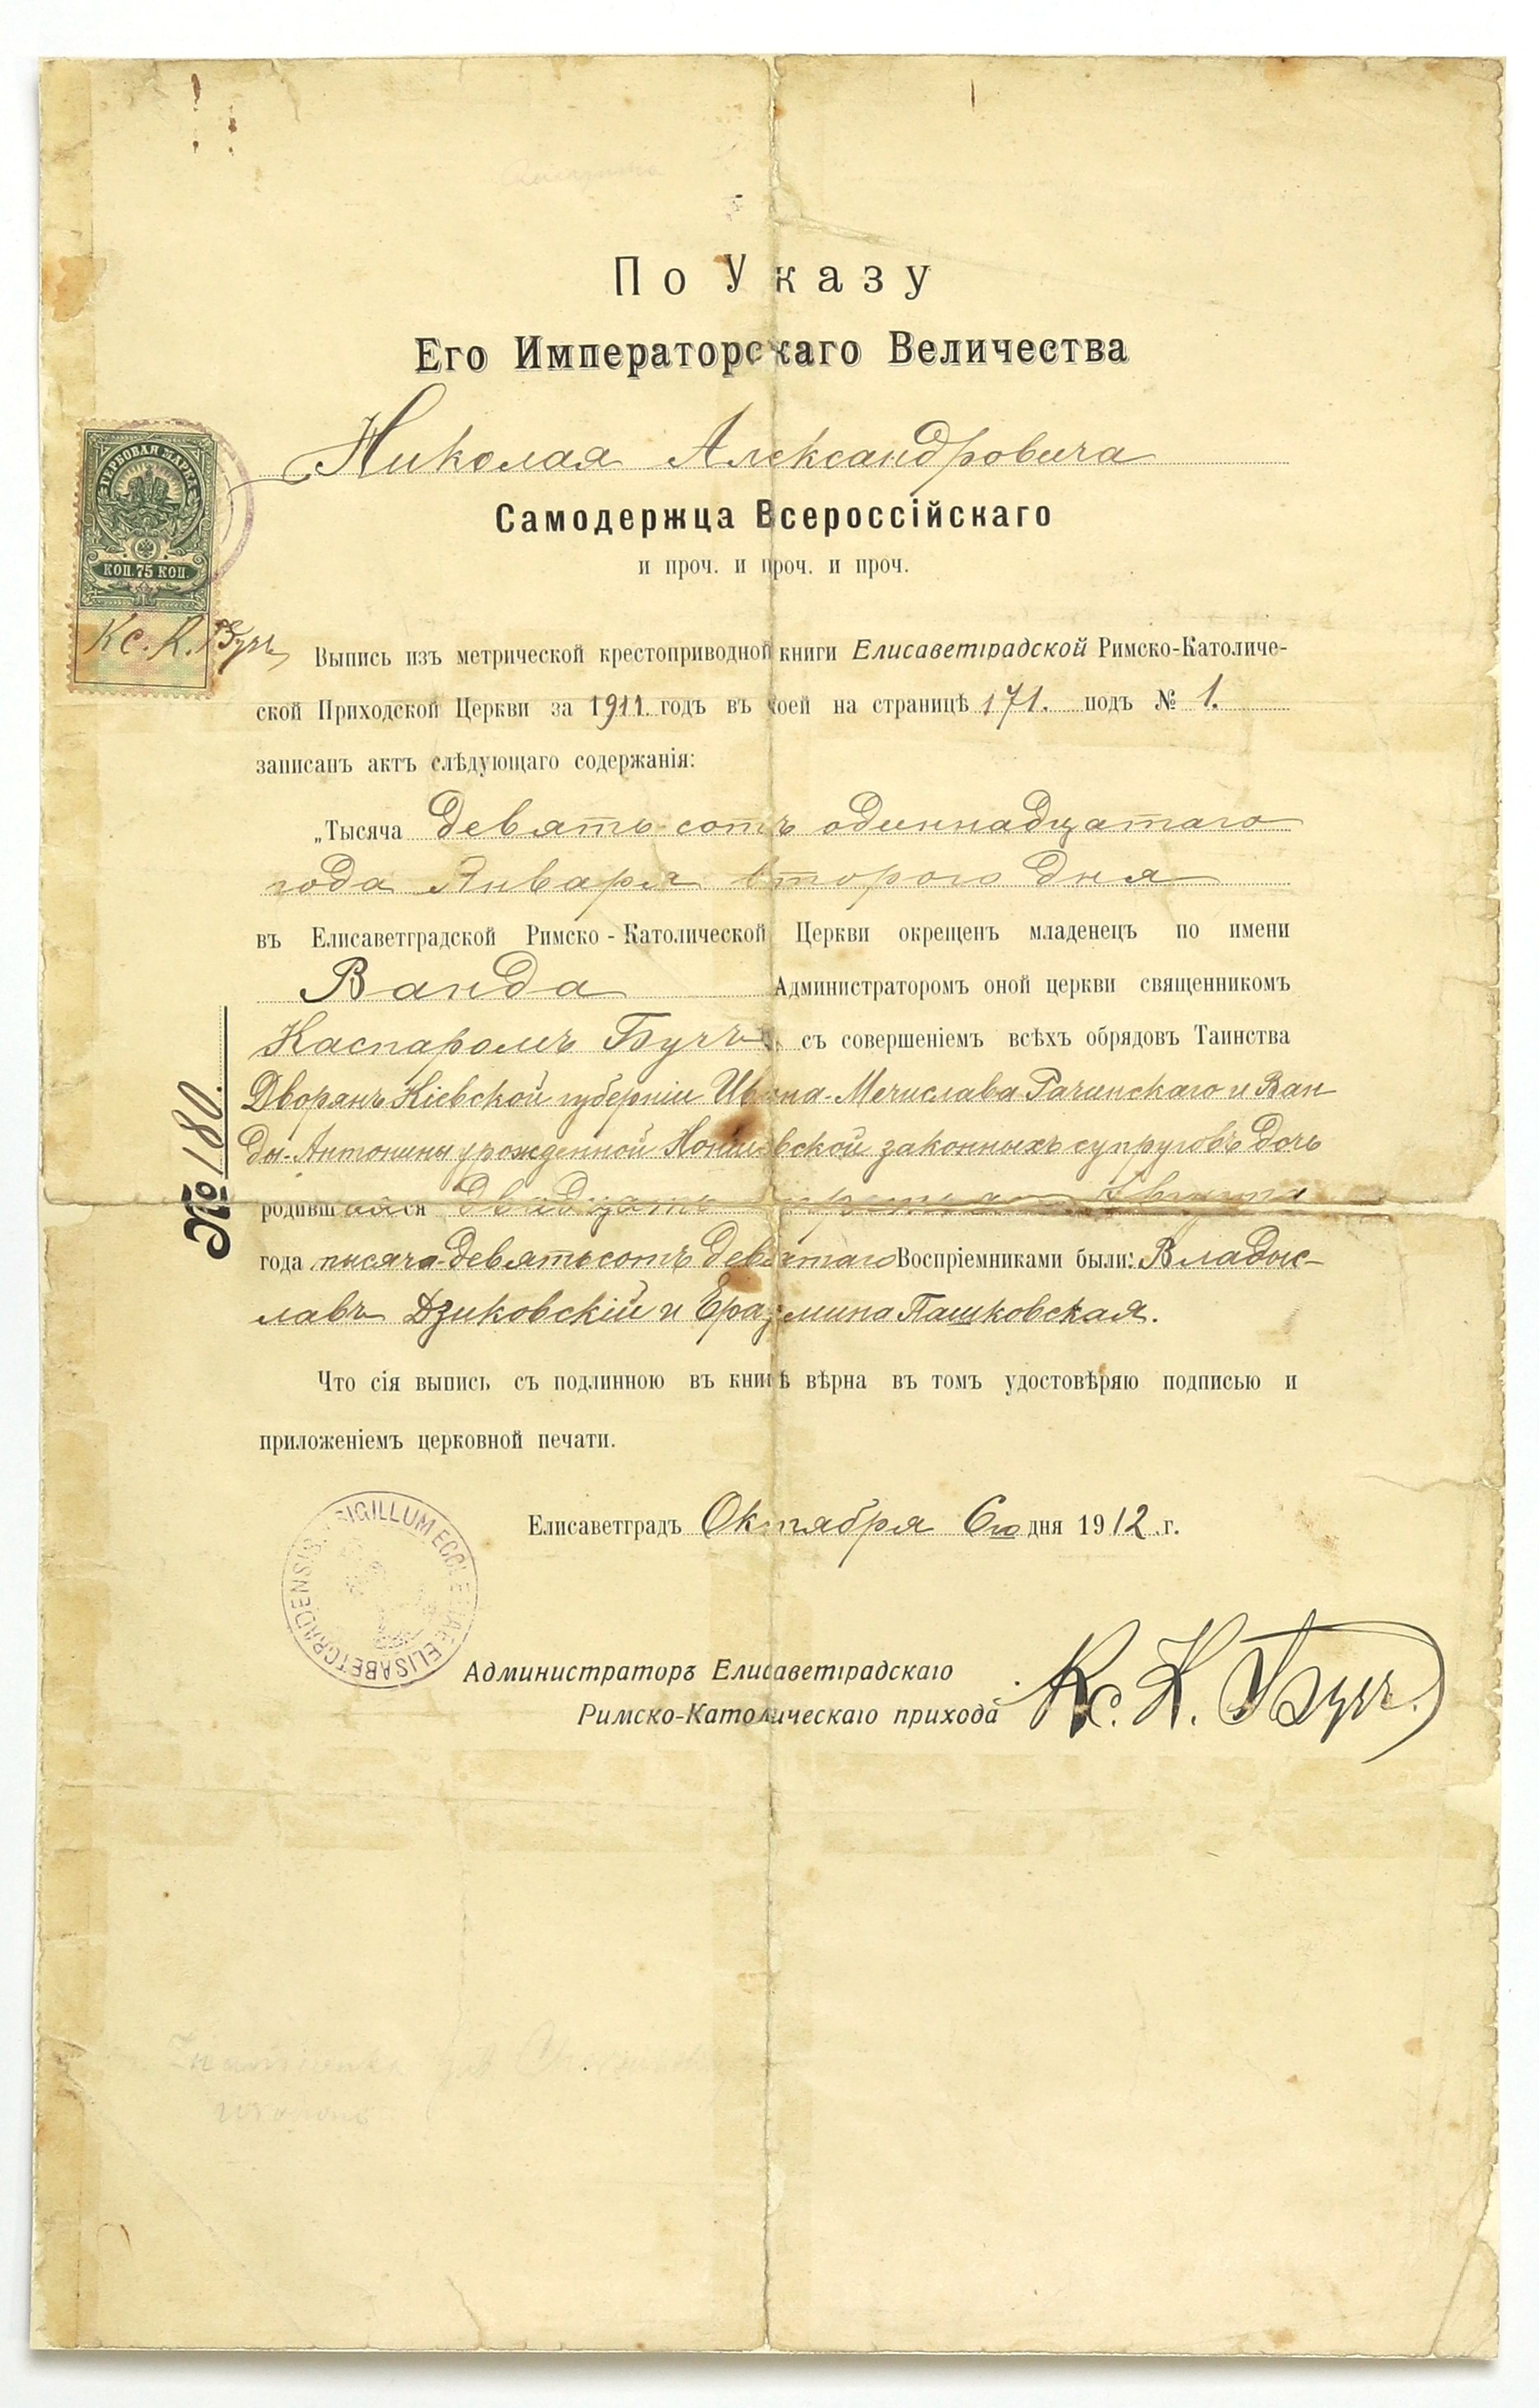 По Указу
Его Императорскаго Величества
Николая Александровича
Самодержца Всероссійскаго
и проч. и проч. и проч.
ГЕРБОВАЯ МАРКА
КОП. 75 КОП.
Кс. К. Бучъ
Выпись изъ метрической крестоприводной книги Елисаветградской Римско-Католиче-
ской Приходской Церкви за 1911 годъ въ коей на страницѣ 171. подъ № 1.
записанъ актъ слѣдующаго содержанія:
„Тысяча девятьсотъ одиннадцатаго
года Января второго дня
въ Елисаветградской Римско-Католической Церкви окрещенъ младенецъ по имени
Ванда Администраторомъ оной церкви священникомъ
Каспаромъ Бучъ, съ совершеніемъ всѣхъ обрядовъ Таинства
Дворянъ Кіевской губерніи Ивана-Мечислава Рачинскаго и Ван
ды-Антонины урожденной законныхъ супруговъ дочь
родившаяся двадцать Августа
года тысяча девятьсотъ девятаго Воспріемниками были: Владис-
лавъ Дзиковскій и Еразмина Пашковская.
№ 180.
Что сія выпись съ подлинною въ книгѣ вѣрна въ томъ удостовѣряю подписью и
приложеніемъ церковной печати.
Елисаветградъ Октября 6го дня 1912 г.
SIGILLUM ECCLESIAE ELISABETGRADENSIS
Администраторъ Елисаветградскаго
Римско-Католическаго прихода Кс. К. Бучъ.